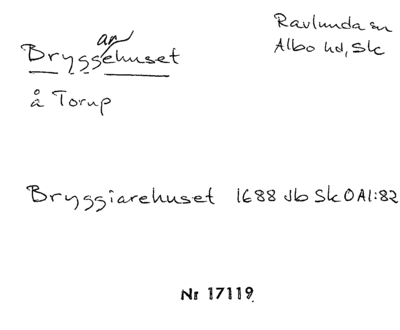 Ravlunda sn
Albo hd, Sk
ar
Bryggehuset
å Torup
Bryggiarehuset 1688 Jb Sk O AI:82
Nr 17119